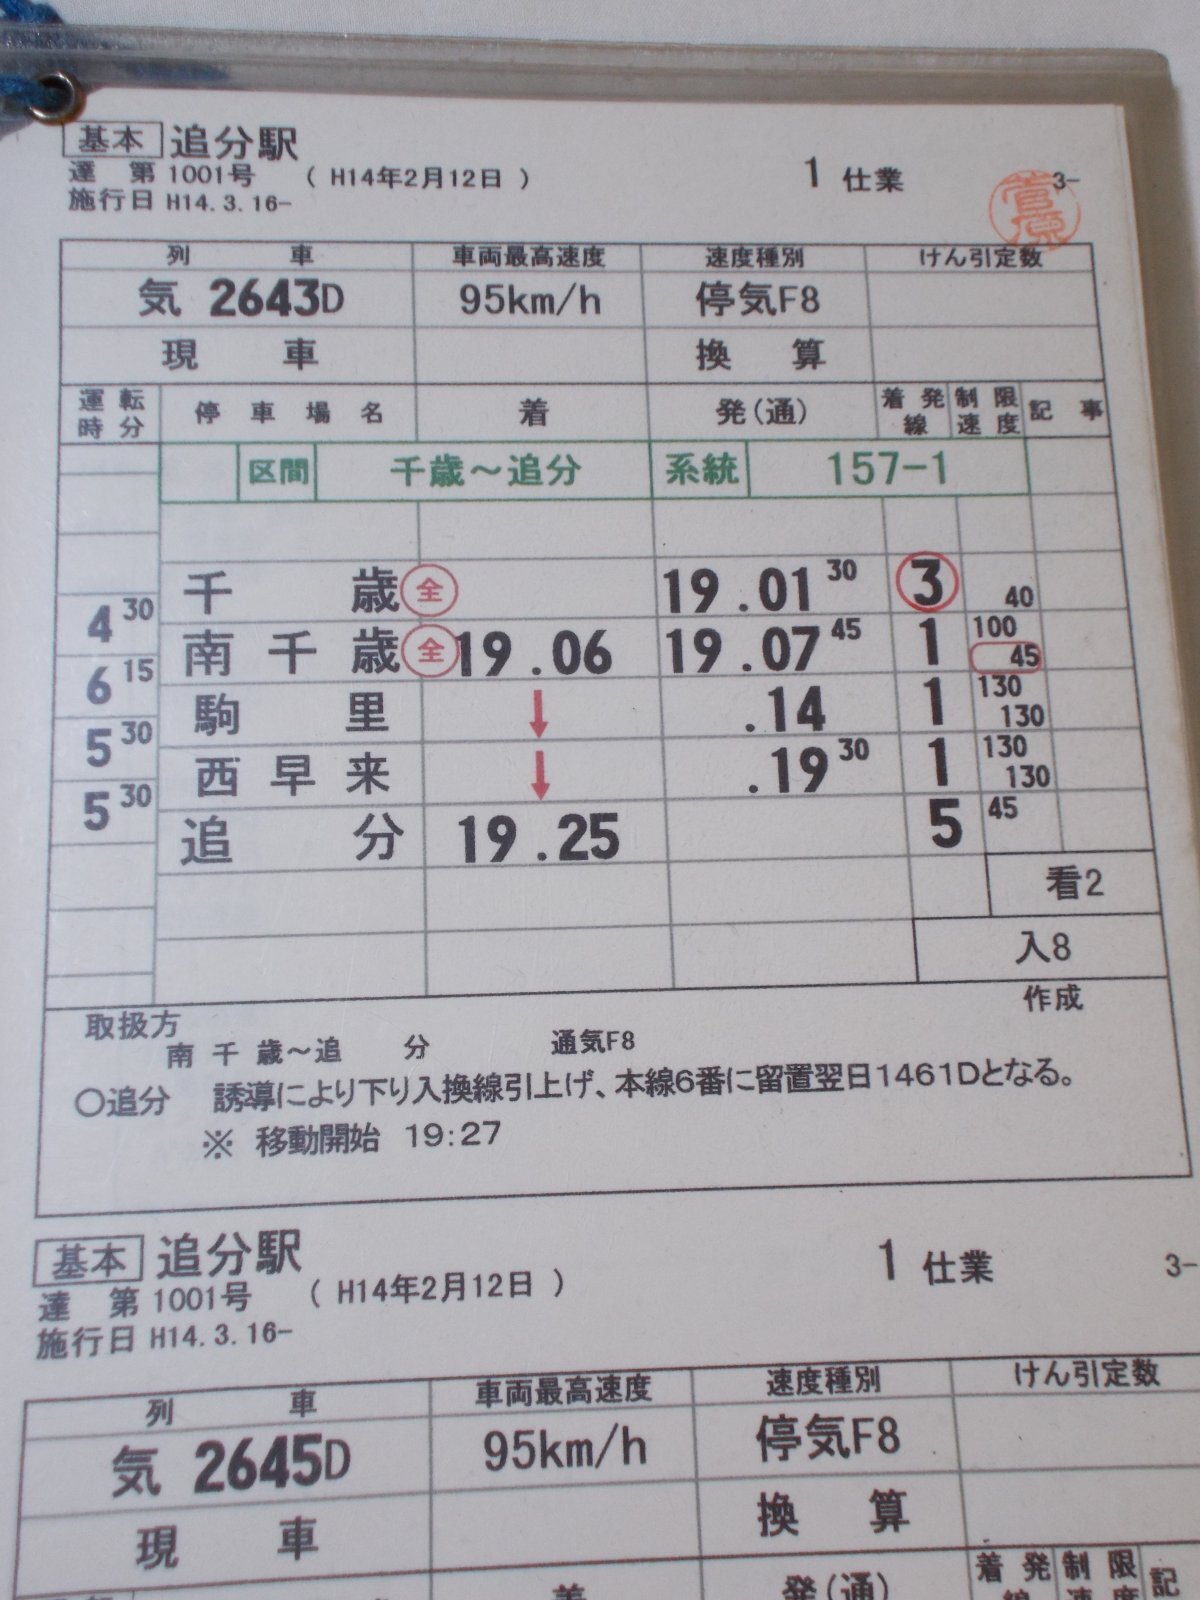 基本 追分駅
達 第1001号 ( H14年2月12日 ) 1 仕業 3-
施行日 H14.3.16-
菅原
列 車 車両最高速度 速度種別 けん引定数
気 2643D 95km/h 停気F8
現 車 換 算
運転時分 停車場名 着 発(通) 着発線 制限速度 記事
区間 千歳～追分 系統 157-1
千 歳 全 19.01 30 3 40
4 30
南千歳 全 19.06 19.07 45 1 100 45
6 15
駒 里 ↓ .14 1 130 130
5 30
西早来 ↓ .19 30 1 130 130
5 30
追 分 19.25 5 45
看2
入8
作成
取扱方
南千歳～追 分 通気F8
○追分 誘導により下り入換線引上げ、本線6番に留置翌日1461Dとなる。
※ 移動開始 19:27
基本 追分駅
達 第1001号 ( H14年2月12日 ) 1 仕業 3-
施行日 H14.3.16-
列 車 車両最高速度 速度種別 けん引定数
気 2645D 95km/h 停気F8
現 車 換 算
着 発(通) 着発線 制限速度 記